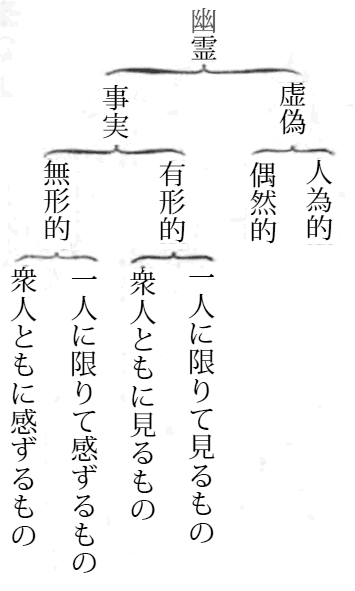 幽霊
虚偽
事実
人為的
偶然的
有形的
無形的
一人に限りて見るもの
衆人ともに見るもの
一人に限りて感ずるもの
衆人ともに感ずるもの